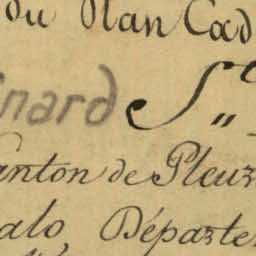 du Plan Cad
nard St „
anton de Pleur
alo, Départe